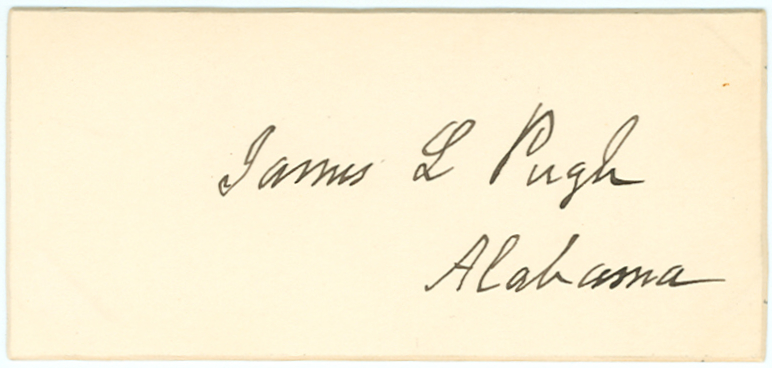 James L Pugh
Alabama